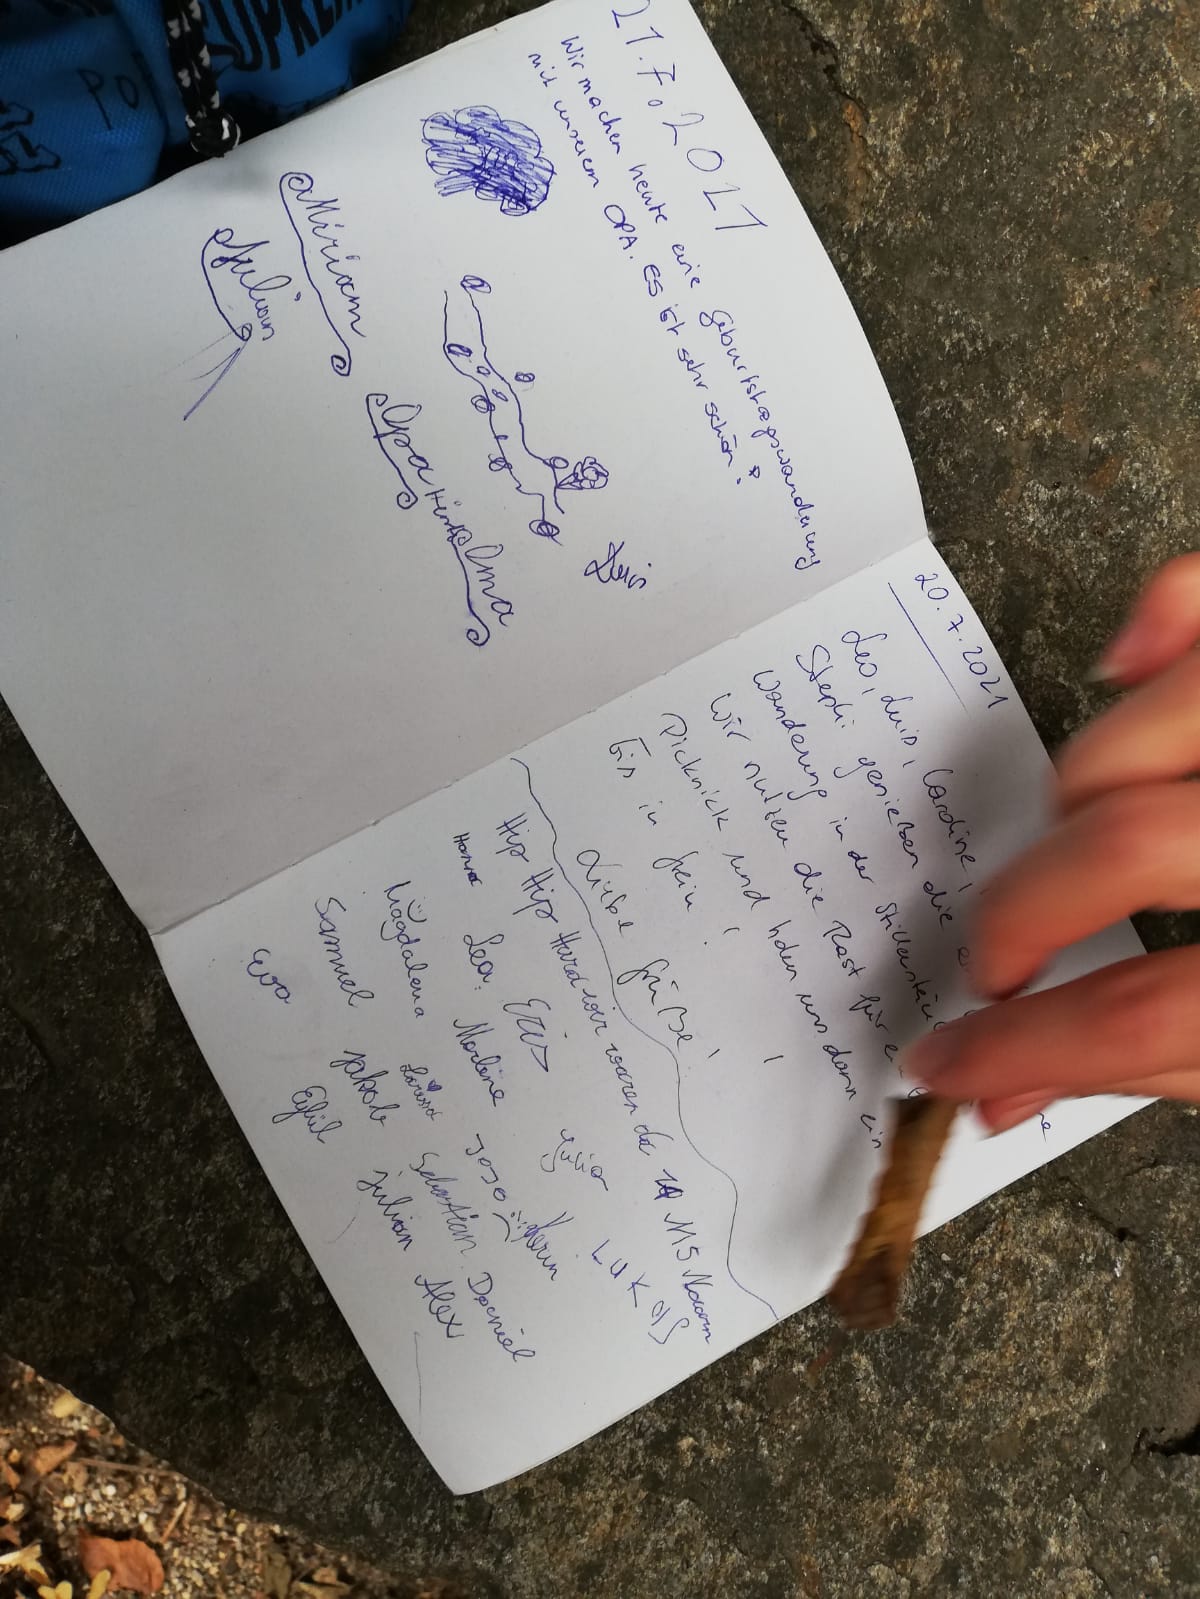 21.7.2021
Wir machen heute eine Geburtstagswanderung
mit unserem OPA. Es ist sehr schön!
Luis
Miriam
Opa
Oma
Julian
20.7.2021
Leo, Luis, Caroline,
Stephi genießen die
Wanderung in der
Wir nutzen die Rast für
Picknick und holen uns dann ein
Eis in Grein!
Liebe Grüße!
Hip Hip Hurra wir waren da MS
Hanna Lea Julia LUKAS
Magdalena Marlene Jojo Karin
Samuel Jakob Larissa Sebastian Daniel
Eva Eylül Julian Alex
SUPREME